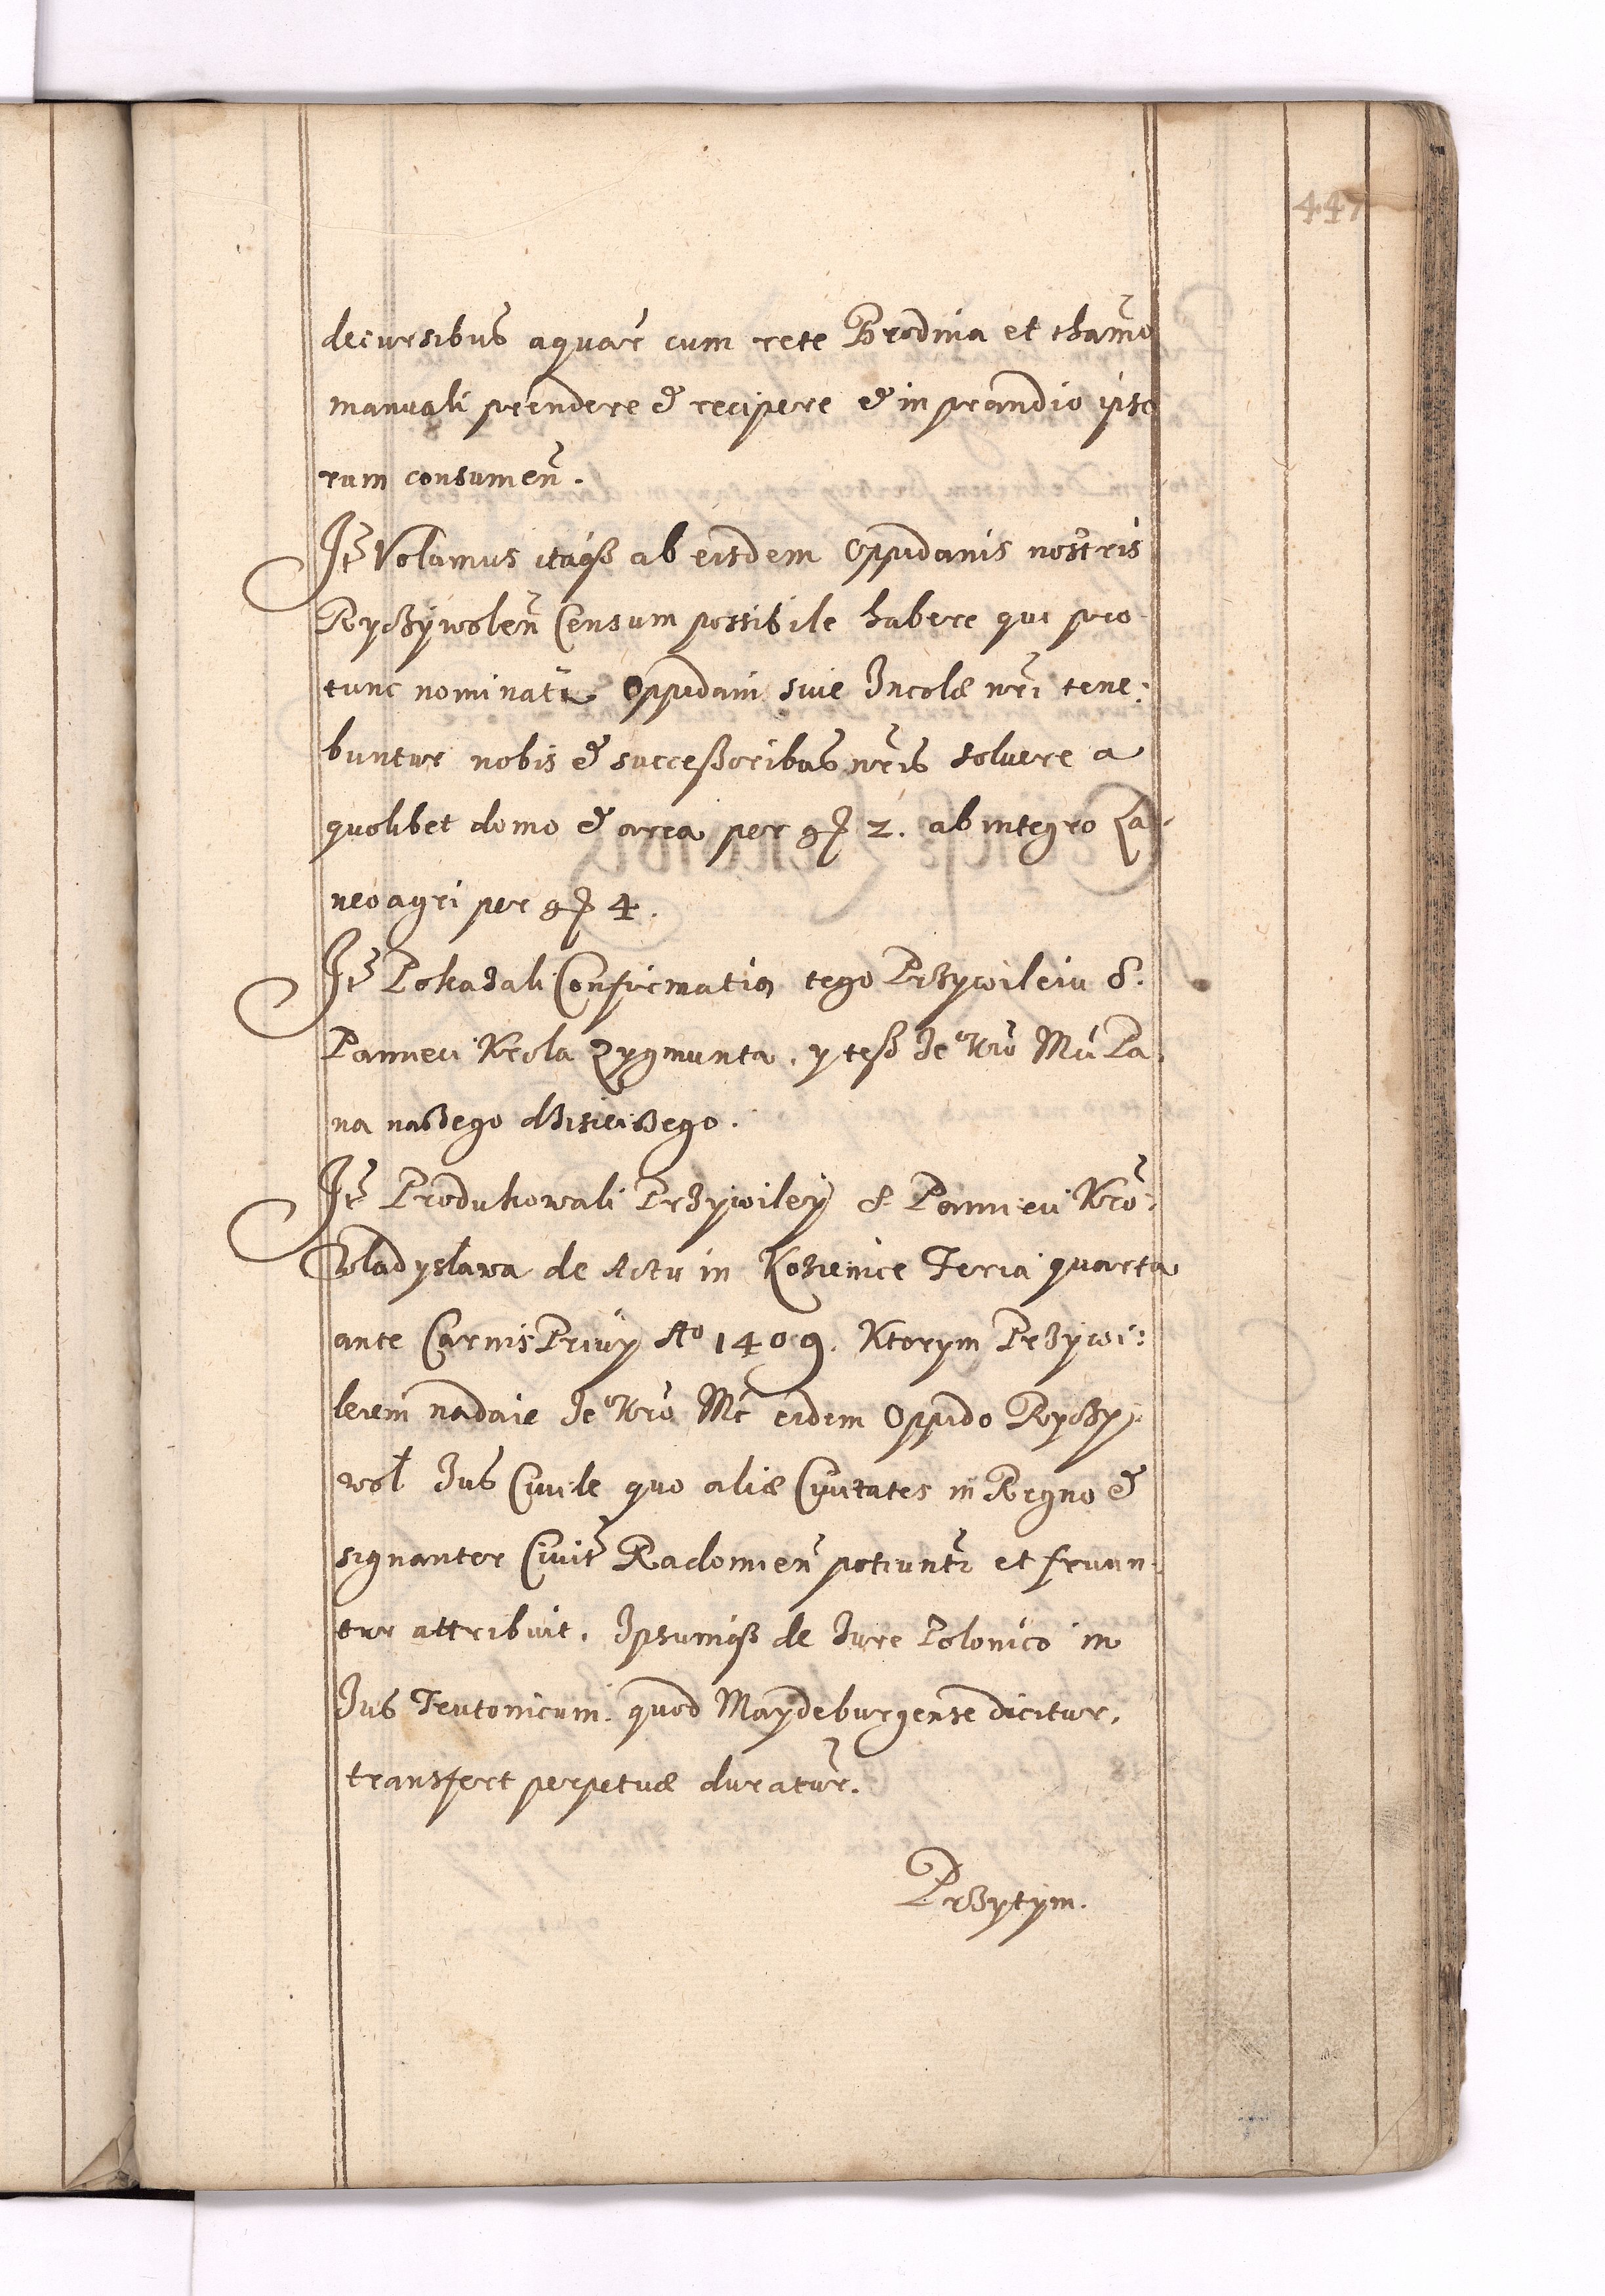 447
decursibus aquar̃ cum rete Brodnia et tham̃o
manuali prendere & recipere & in prandio ipso
rum consumeñ.
It̃ Volumus itaqß ab eisdem Oppidanis nostris
Ryczÿwoleñ Censum possibile habere qui pro
tunc nominati Oppidani siue Incolæ nr̃i tene:
buntur nobis & successoribus nr̃is soluere a
quolibet domo & area per gł 2. ab integro La:
neo agri per gł 4.
It̃ Pokazali Confirmatią tego Przÿwileiu S.
Pamieci Krola Zygmunta, y tesz Je⁰ Kr̃o Mći Pa
na naszego dzisieiszego.
It̃ Produkowali Przÿwileÿ S. Pamieci Kro:
Wladysława de Actu in Kozienice Feria quarta
ante CarnisPriuÿ A⁰ 1409. Ktorym Przÿwi:
leiem nadaie Je⁰ Kr̃o Mć eidem Oppido Ryczÿ:
woł Jus Ciuile quo aliæ Ciuitates in Regno &
signanter Ciuit̃ Radomieñ potiuntr̃ et fruun:
tur attribuit. Ipsumqß de Jure Polonico in
Jus Teutonicum. quod Maydeburgense dicitur,
transfert perpetuæ duratur̃.
Przytym.